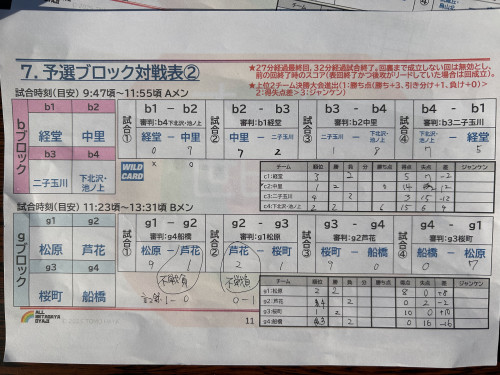 7. 予選ブロック対戦表②
★27分経過最終回，32分経過試合終了。回裏まで成立しない回は無効とし，
前の回終了時のスコア(表回終了かつ後攻がリードしていた場合は回成立)。
★上位2チーム決勝大会進出(1:勝ち点(勝ち+3、引き分け+1、負け+0)>
2:得失点差>3:ジャンケン)
試合時刻(目安) 9:47頃~11:55頃 Aメン
bブロック
b1 b2
経堂 中里
b3 b4
二子玉川 下北沢・池ノ上
試合① b1 - b2
審判:b4下北沢・池ノ上
経堂 - 中里
0 7
試合② b2 - b3
審判:b1経堂
中里 - 二子玉川
7 2
試合③ b3 - b4
審判:b2中里
二子玉川 - 下北沢・池ノ上
1 8
試合④ b4 - b1
審判:b3二子玉川
下北沢・池ノ上 - 経堂
7 5
WILD CARD
x 0
チーム 順位 勝 負 分 勝ち点 得点 失点 差 ジャンケン
c1:経堂 3 2
c2:中里 1 2 0 14
c3:二子玉川 3 15 -12
c4:下北沢・池ノ上 2 2 6 15 6 9
試合時刻(目安) 11:23頃~13:31頃 Bメン
gブロック
g1 g2
松原 芦花
g3 g4
桜町 船橋
試合① g1 - g2
審判:g4船橋
松原 - 芦花
9
不戦負
1-0
試合② g2 - g3
審判:g1松原
芦花 - 桜町
2 1
不戦負
0-1
試合③ g3 - g4
審判:g2芦花
桜町 - 船橋
9 0
試合④ g4 - g1
審判:g3桜町
船橋 - 松原
0 7
チーム 順位 勝 負 分 勝ち点 得点 失点 差 ジャンケン
g1:松原 2 2 8 0 +8
g2:芦花 4 0 2 -2
g3:桜町 1 2 10 0 +10
g4:船橋 3 0 16 -16
ALL SETAGAYA OYAJI
11